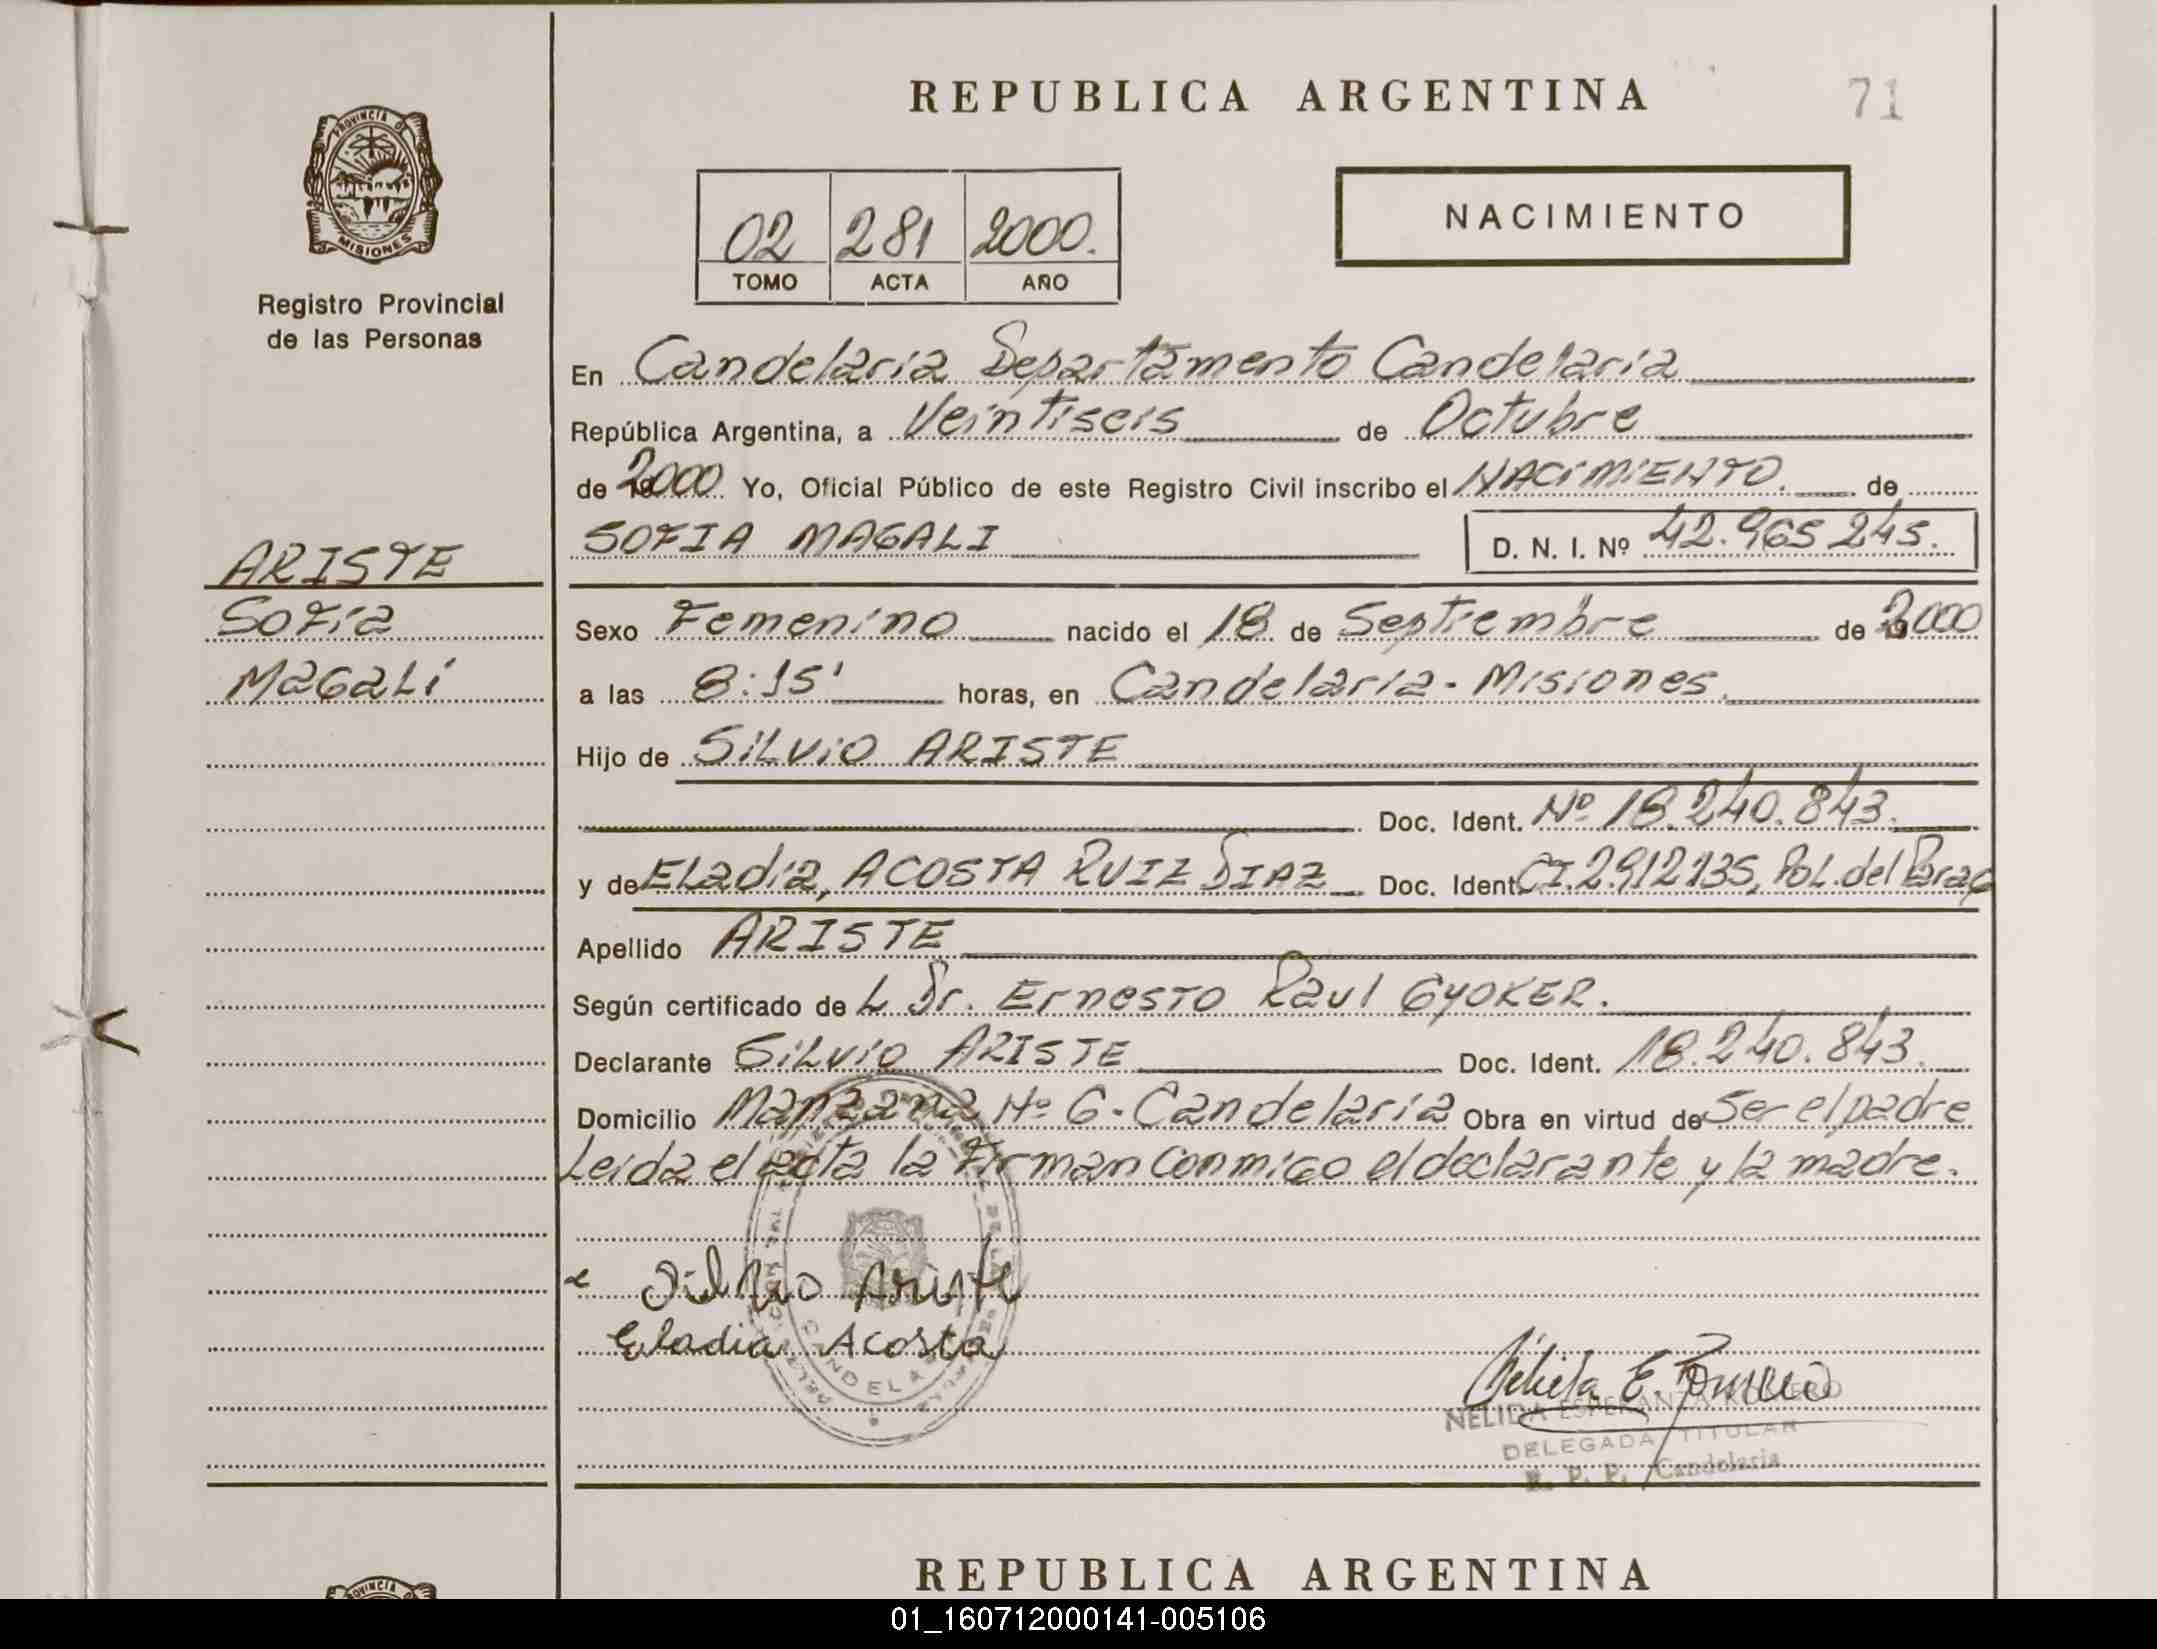 REPUBLICA ARGENTINA
71
PROVINCIA DE MISIONES
Registro Provincial
de las Personas
02 281 2000.
TOMO ACTA AÑO
NACIMIENTO
En Candelaria Departamento Candelaria
República Argentina, a Veintiseis de Octubre
de 2000 Yo, Oficial Público de este Registro Civil inscribo el NACIMIENTO. de
SOFIA MAGALI D. N. I. Nº 42.965 245.
ARISTE
Sofia
Magali
Sexo Femenino nacido el 18 de Septiembre de 2000
a las 8:15' horas, en Candelaria - Misiones.
Hijo de Silvio ARISTE
Doc. Ident. Nº 18.240.843.
y de Eladia, ACOSTA RUIZ DIAZ Doc. Ident. CI. 2.912 135, Pol. del Parag
Apellido ARISTE
Según certificado de L Dr. Ernesto Raul GYOKER.
Declarante Silvio ARISTE Doc. Ident. 18.240.843.
Domicilio Manzana Nº 6 - Candelaria Obra en virtud de Ser el padre
Leida el acta la Firman conmigo el declarante y la madre.
Silvio Ariste
Eladia Acosta
Nélida E. Romero
NELIDA ESPERANZA ROMERO
DELEGADA TITULAR
R. P. P. Candelaria
REPUBLICA ARGENTINA
01_160712000141-005106